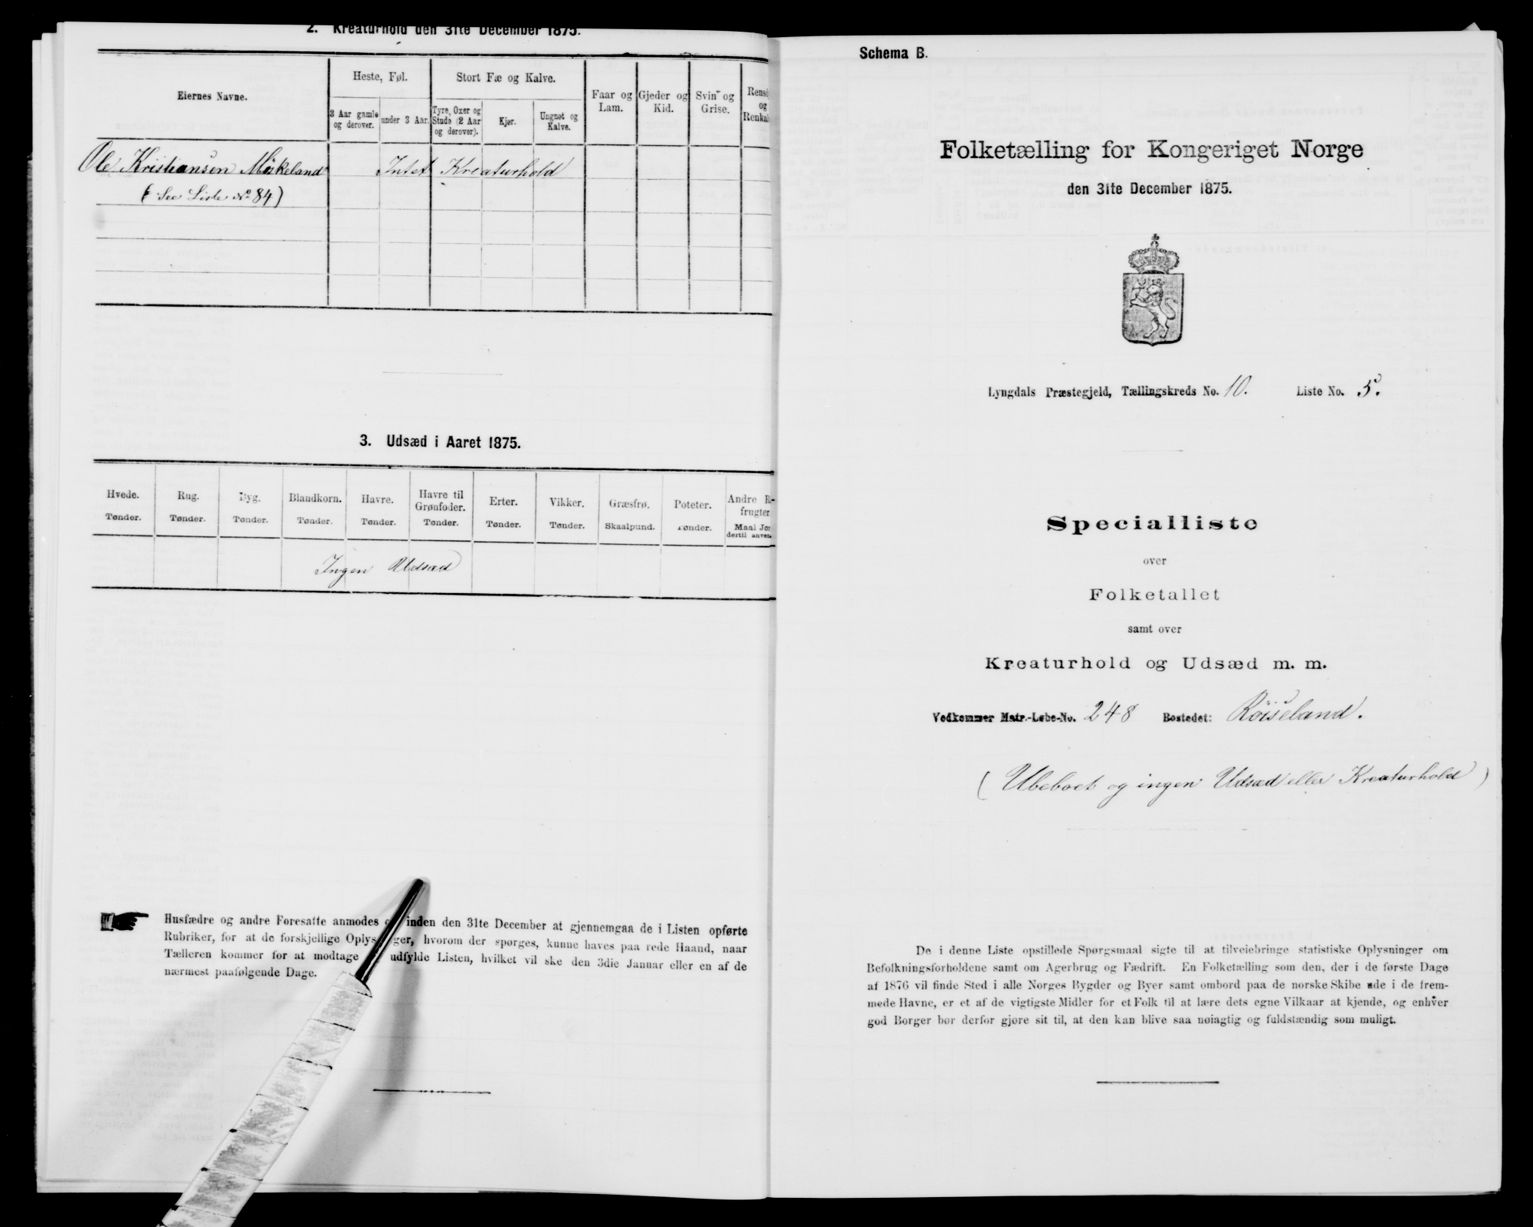 2. Kreaturhold den 31te December 1875.
Eiernes Navne.
Heste, Føl.
Stort Fæ og Kalve.
Faar og
Lam.
Gjeder og
Kid.
Svin og
Grise.
og
3 Aar gamle
og derover.
under 3 Aar.
Tyre, Oxer og
Stude (2 Aar
og derover).
Kjør.
Ungnøt og
Kalve.
Ole Kristiansen Møikeland Intet Kreaturhold
(See Liste No 84)
3. Udsæd i Aaret 1875.
Hvede.
Tønder.
Rug.
Tønder.
Byg.
Tønder.
Blandkorn.
Tønder.
Havre.
Tønder.
Havre til
Grønfoder.
Tønder.
Erter.
Tønder.
Vikker.
Tønder.
Græsfrø.
Skaalpund.
Poteter.
Tønder.
Andre R-
frugter
Maal Jor
dertil anven
Ingen Udsæd
Husfædre og andre Foresatte anmodes inden den 31te December at gjennemgaa de i Listen opførte
Rubriker, for at de forskjellige hvorom der spørges, kunne haves paa rede Haand, naar
Tælleren kommer for at modtage udfylde Listen, hvilket vil ske den 3die Januar eller en af de
nærmest paafølgende Dage.
Schema B.
Folketælling for Kongeriget Norge
den 31te December 1875.
Lyngdals Præstegjeld, Tællingskreds No. 10. Liste No. 5.
Specialliste
over
Folketallet
samt over
Kreaturhold og Udsæd m. m.
Vedkommer Matr.-Løbe-No. 248 Bostedet: Røiseland.
(Ubeboet og ingen Udsæd eller Kreaturhold)
De i denne Liste opstillede Spørgsmaal sigte til at tilveiebringe statistiske Oplysninger om
Befolkningsforholdene samt om Agerbrug og Fædrift. En Folketælling som den, der i de første Dage
af 1876 vil finde Sted i alle Norges Bygder og Byer samt ombord paa de norske Skibe ude i de frem-
mede Havne, er et af de vigtigste Midler for et Folk til at lære dets egne Vilkaar at kjende, og enhver
god Borger bør derfor gjøre sit til, at den kan blive saa nøiagtig og fuldstændig som muligt.